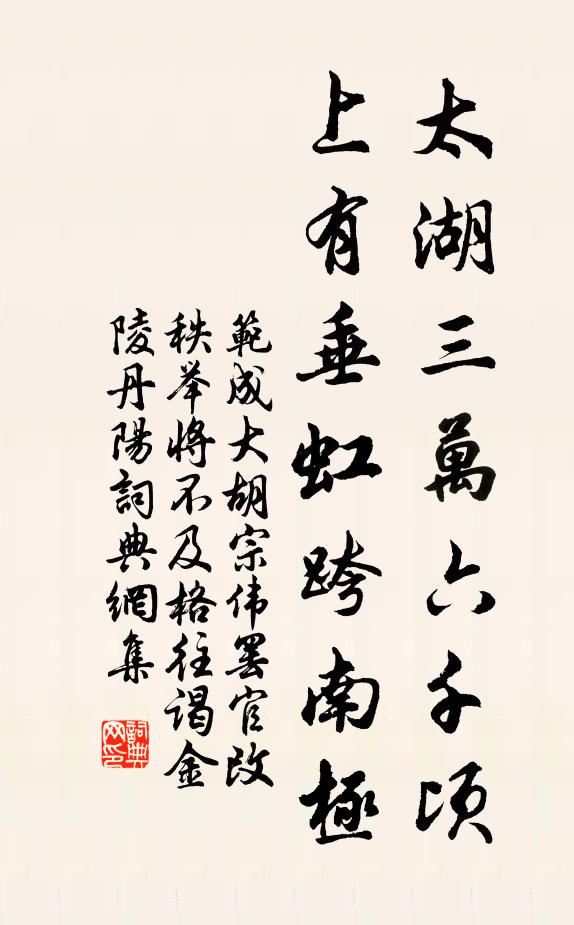 太湖三萬六千頃
上有垂虹跨南極
範成大胡宗伟罢官改
秩举将不及格往谒金
陵丹陽詞典網集
詞典
网印